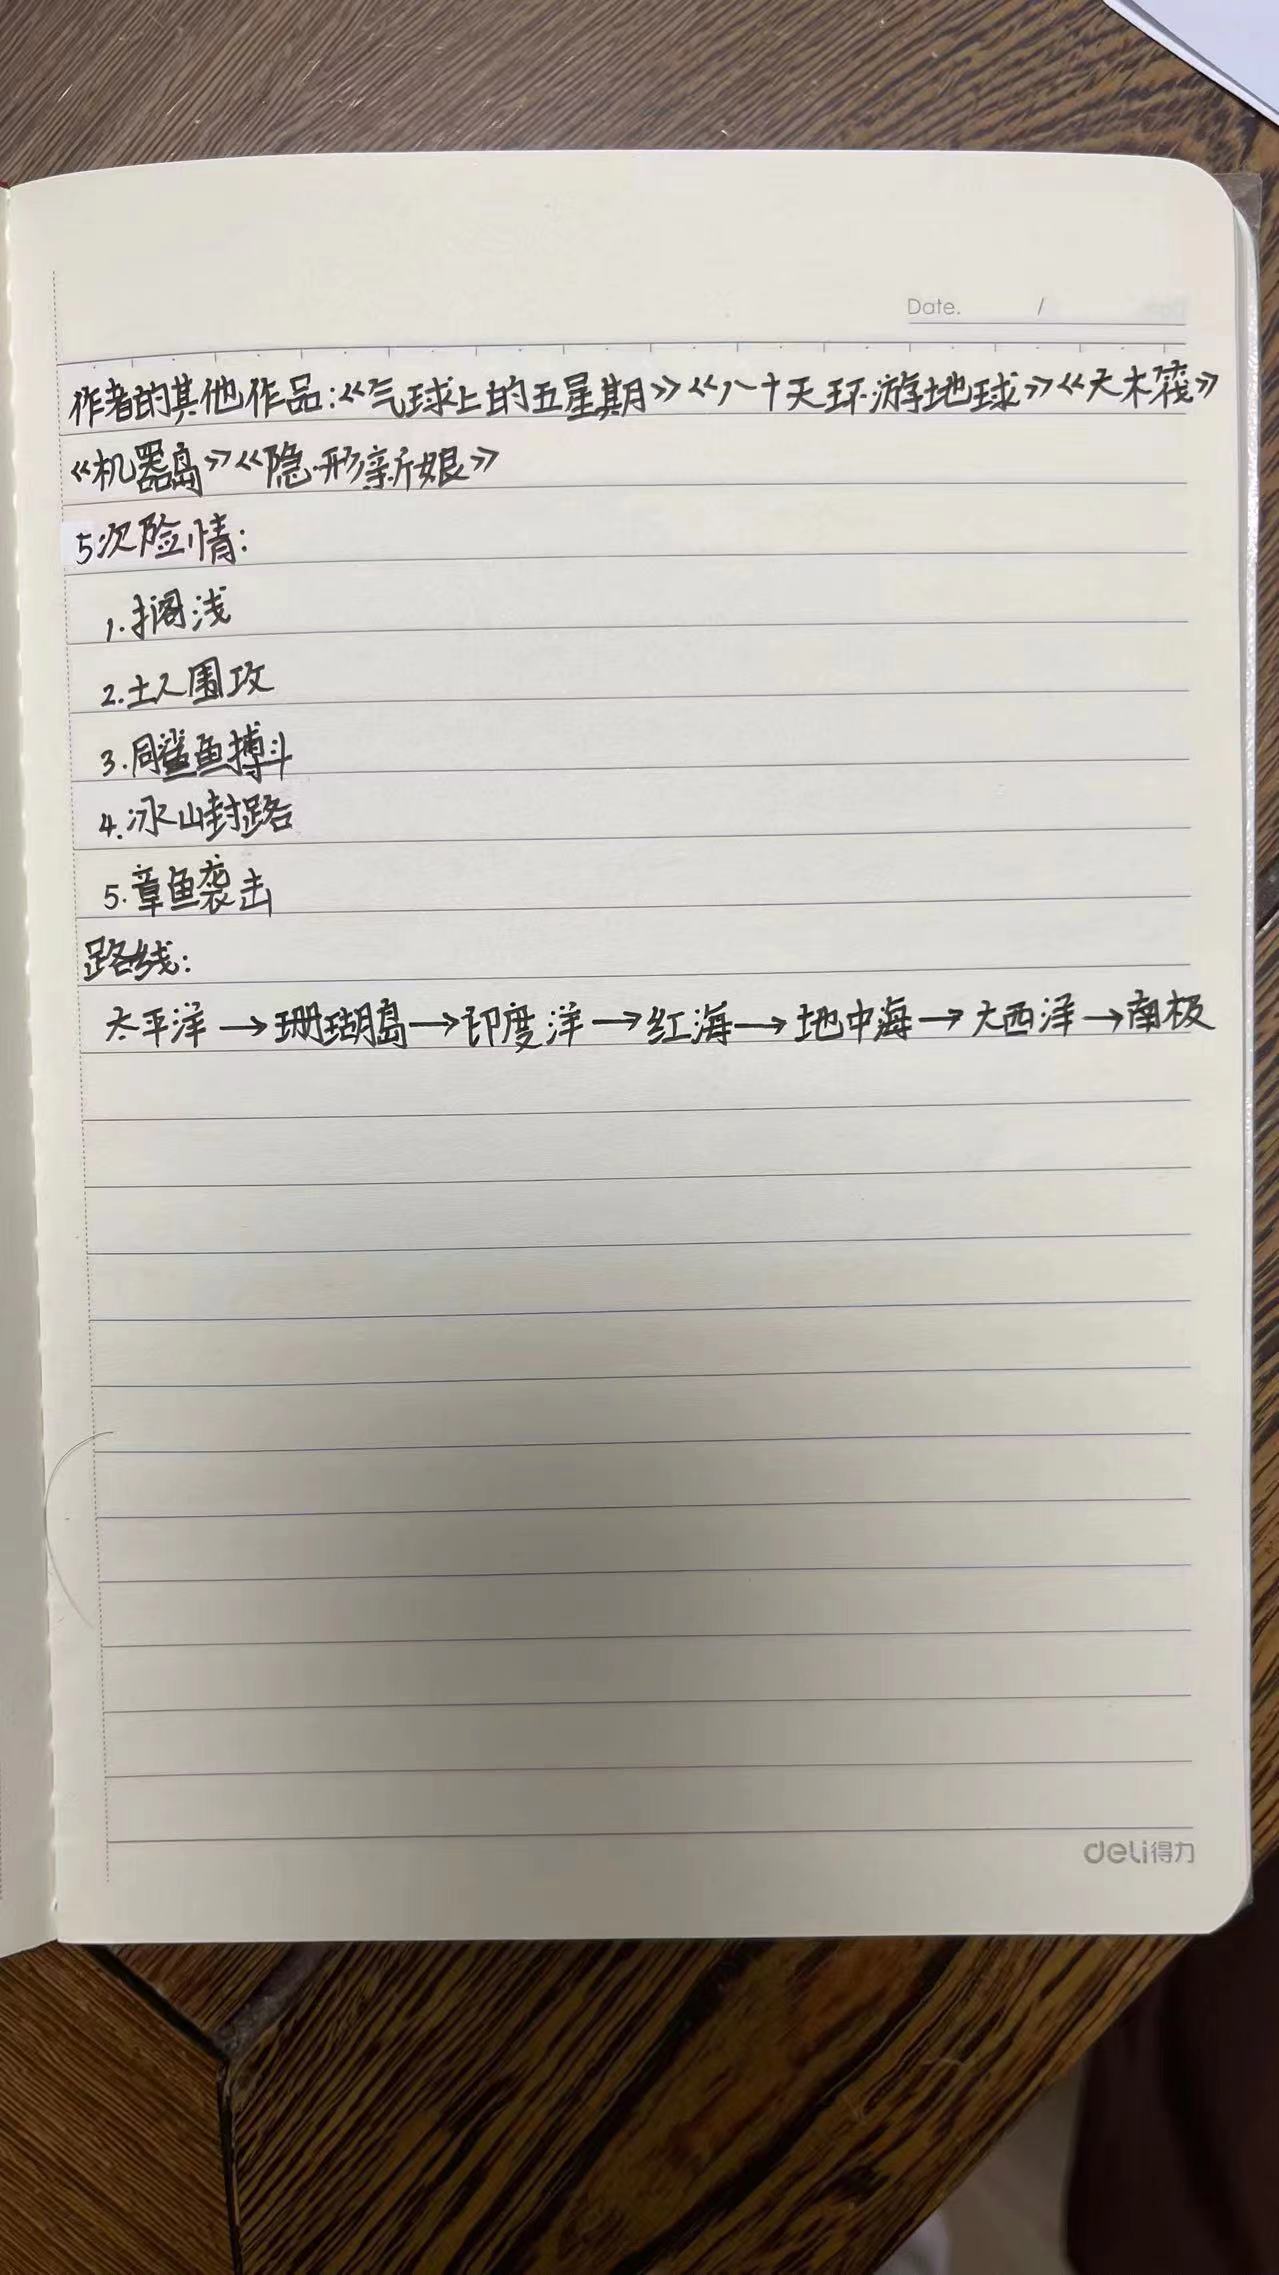 Date. /
作者的其他作品:《气球上的五星期》《八十天环游地球》《大木筏》
《机器岛》《隐形新娘》
5次险情:
1.搁浅
2.土人围攻
3.同鲨鱼搏斗
4.冰山封路
5.章鱼袭击
路线:
太平洋→珊瑚岛→印度洋→红海→地中海→大西洋→南极
deli得力